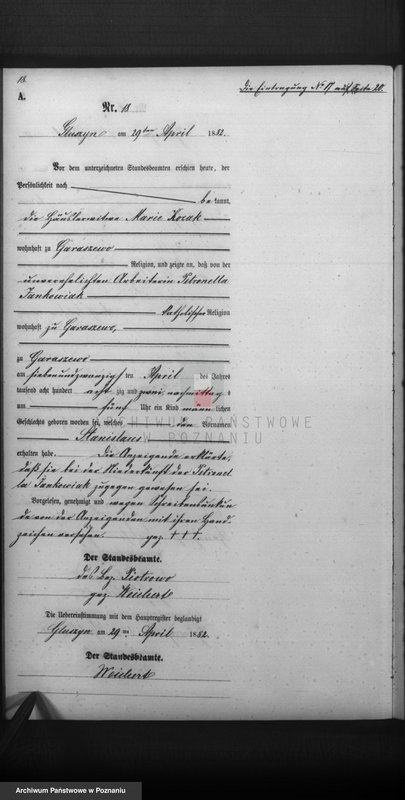 18.
Die Eintragung No 17 auf Seite 20
A.
Nr. 18
Gluszyn am 29ten April 1882.
Vor dem unterzeichneten Standesbeamten erschien heute, der
Persönlichkeit nach
be kannt,
die Häuslerwitwe Marie Kozak
wohnhaft zu Garaszewo
Religion, und zeigte an, daß von der
unverehelichten Arbeiterin Petronella
Jankowiak
katholischer Religion
wohnhaft zu Garaszewo,
zu Garaszewo
am siebenundzwanzig ten April des Jahres
tausend acht hundert acht zig und zwei, nachmittag s
um fünf Uhr ein Kind männ lichen
Geschlechts geboren worden sei, welches den Vornamen
Stanislaus
erhalten habe. Die Anzeigende erklärte,
daß sie bei der Niederkunft der Petronel
la Jankowiak zugegen gewesen sei.
Vorgelesen, genehmigt und wegen Schreibenunkun
de von der Anzeigenden mit ihren Hand-
zeichen versehen. gez. † † †.
Der Standesbeamte.
des Bez. Piotrowo
gez. Weichert
Die Uebereinstimmung mit dem Hauptregister beglaubigt
Gluszyn am 29ten April 1882.
Der Standesbeamte.
Weichert
ARCHIWUM PAŃSTWOWE
W POZNANIU
Archiwum Państwowe w Poznaniu